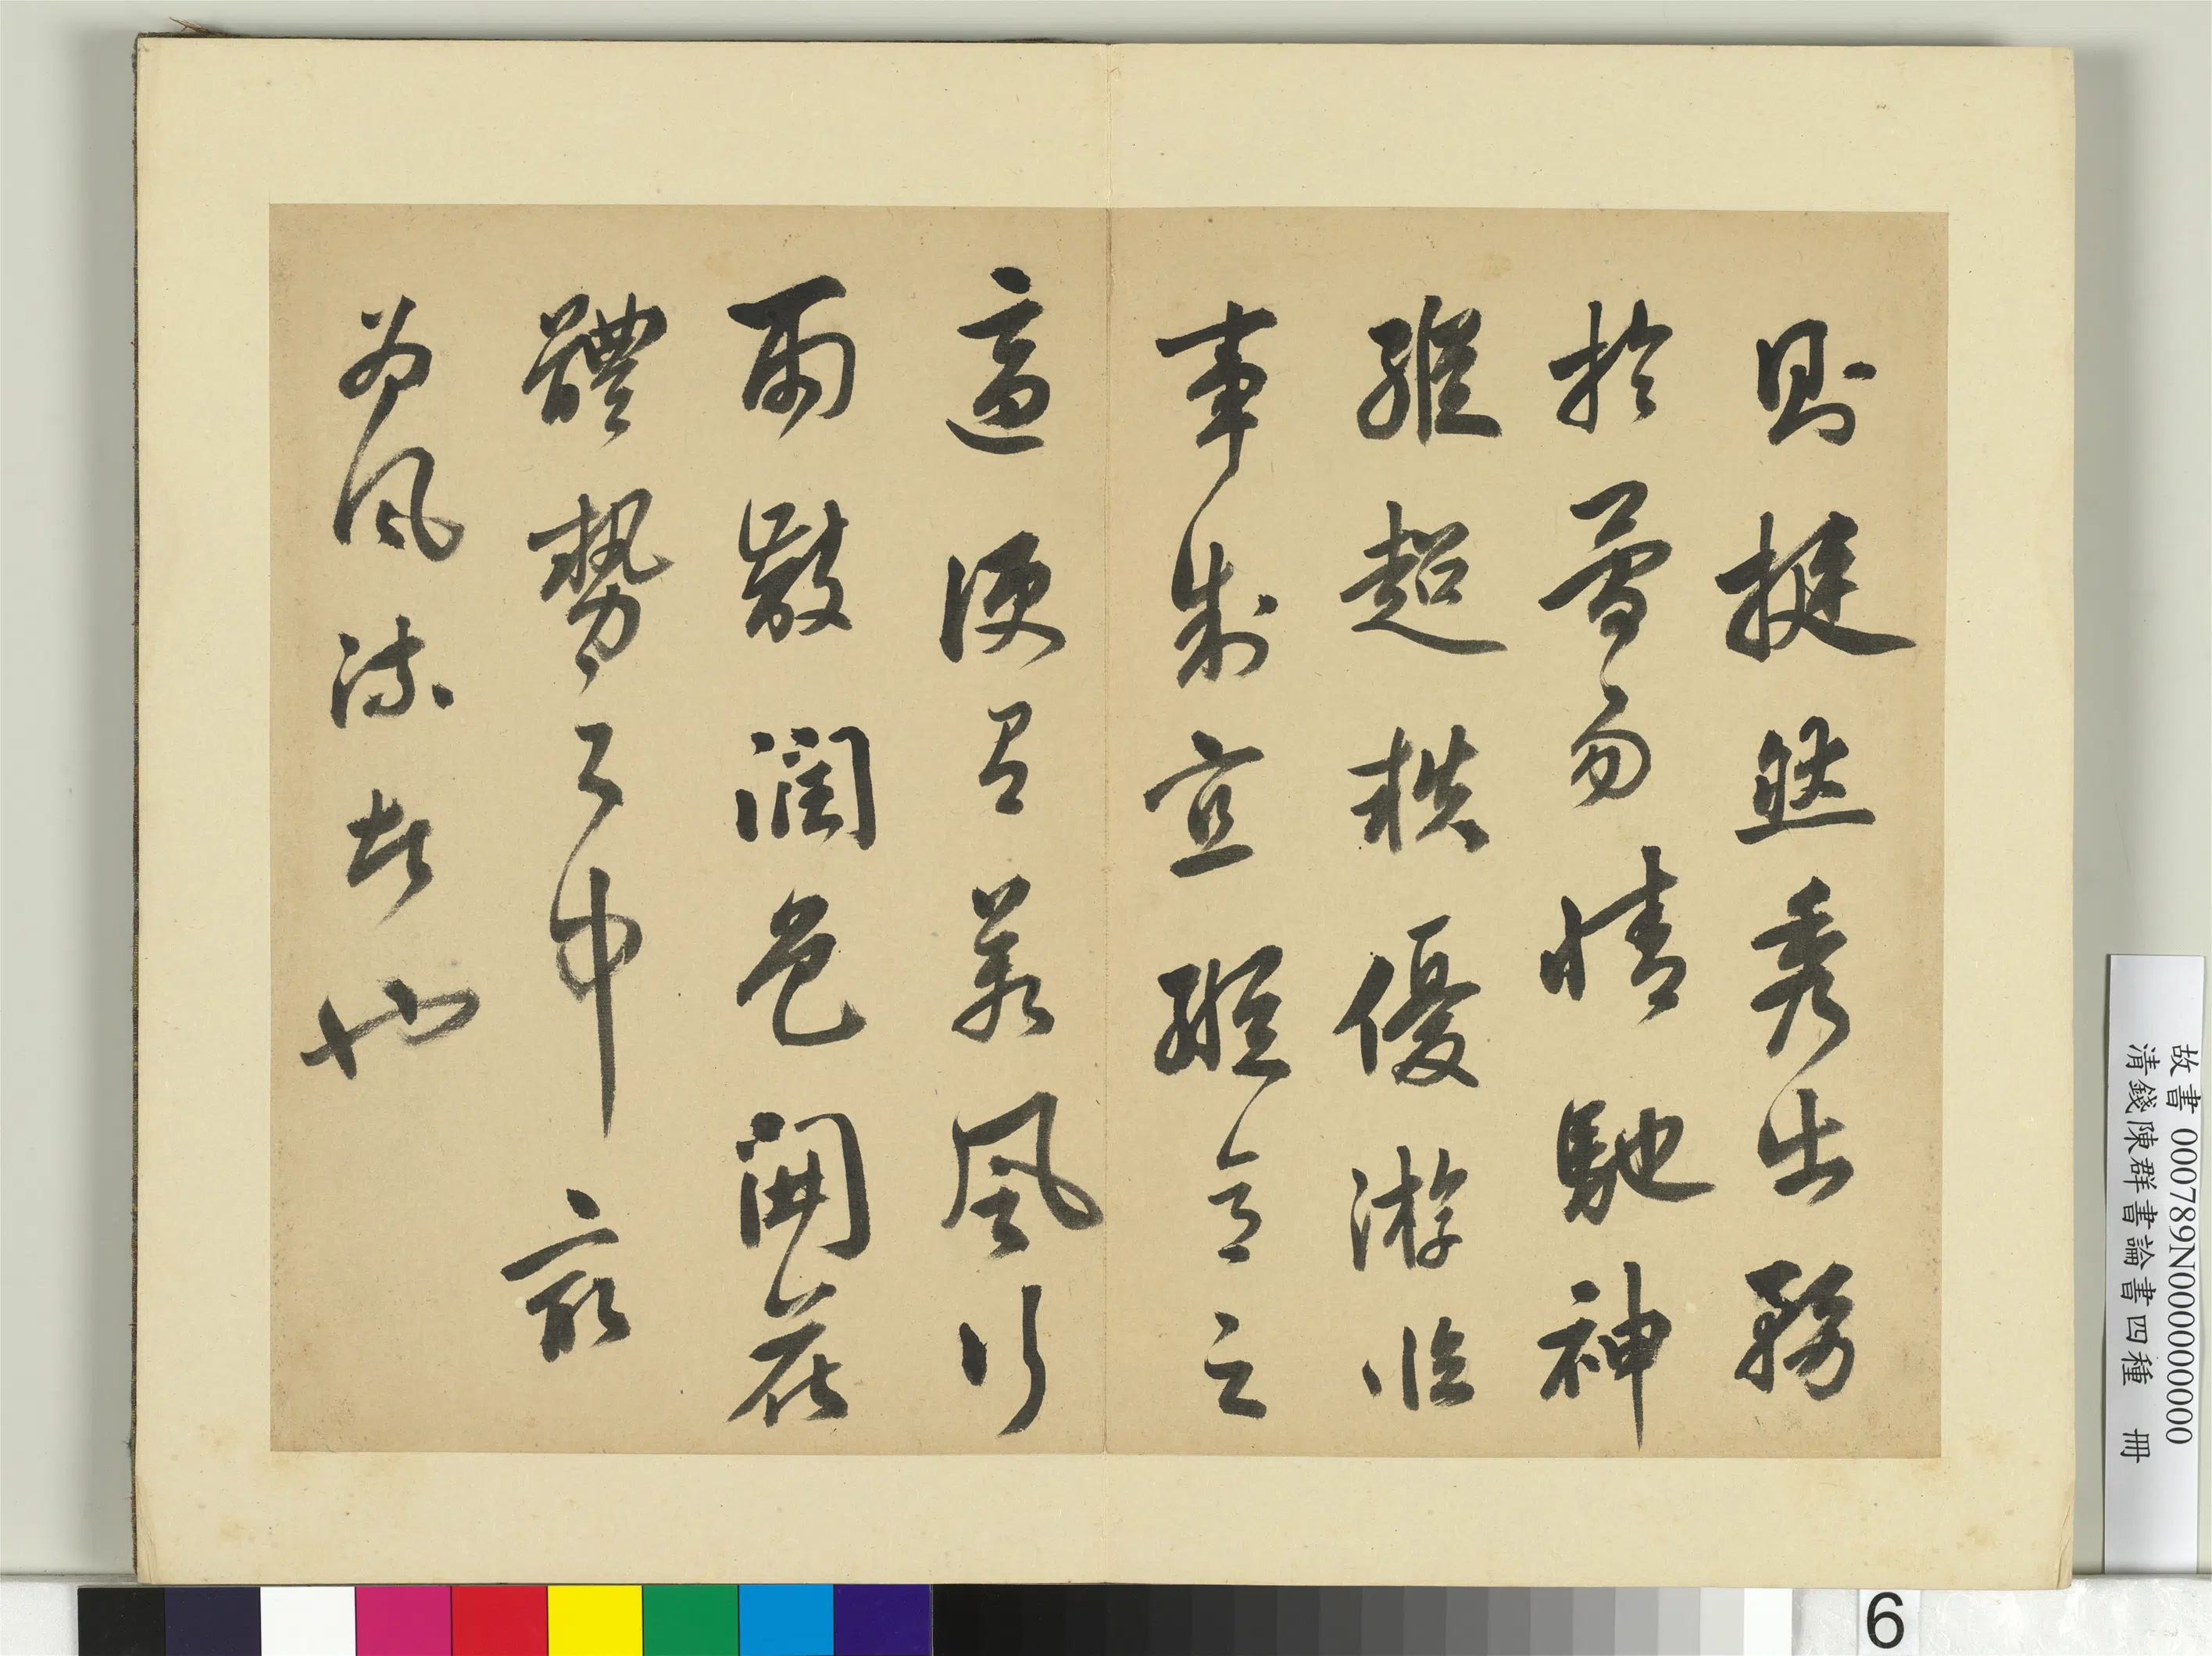 則挺然秀出務
於簡易情馳神
縱超軼優游臨
事制宜縱意之
適便有若風行
雨散潤色開花
體勢之中最
為風流者也
故書 000789N000000000
清錢陳群書論書四種 冊
6